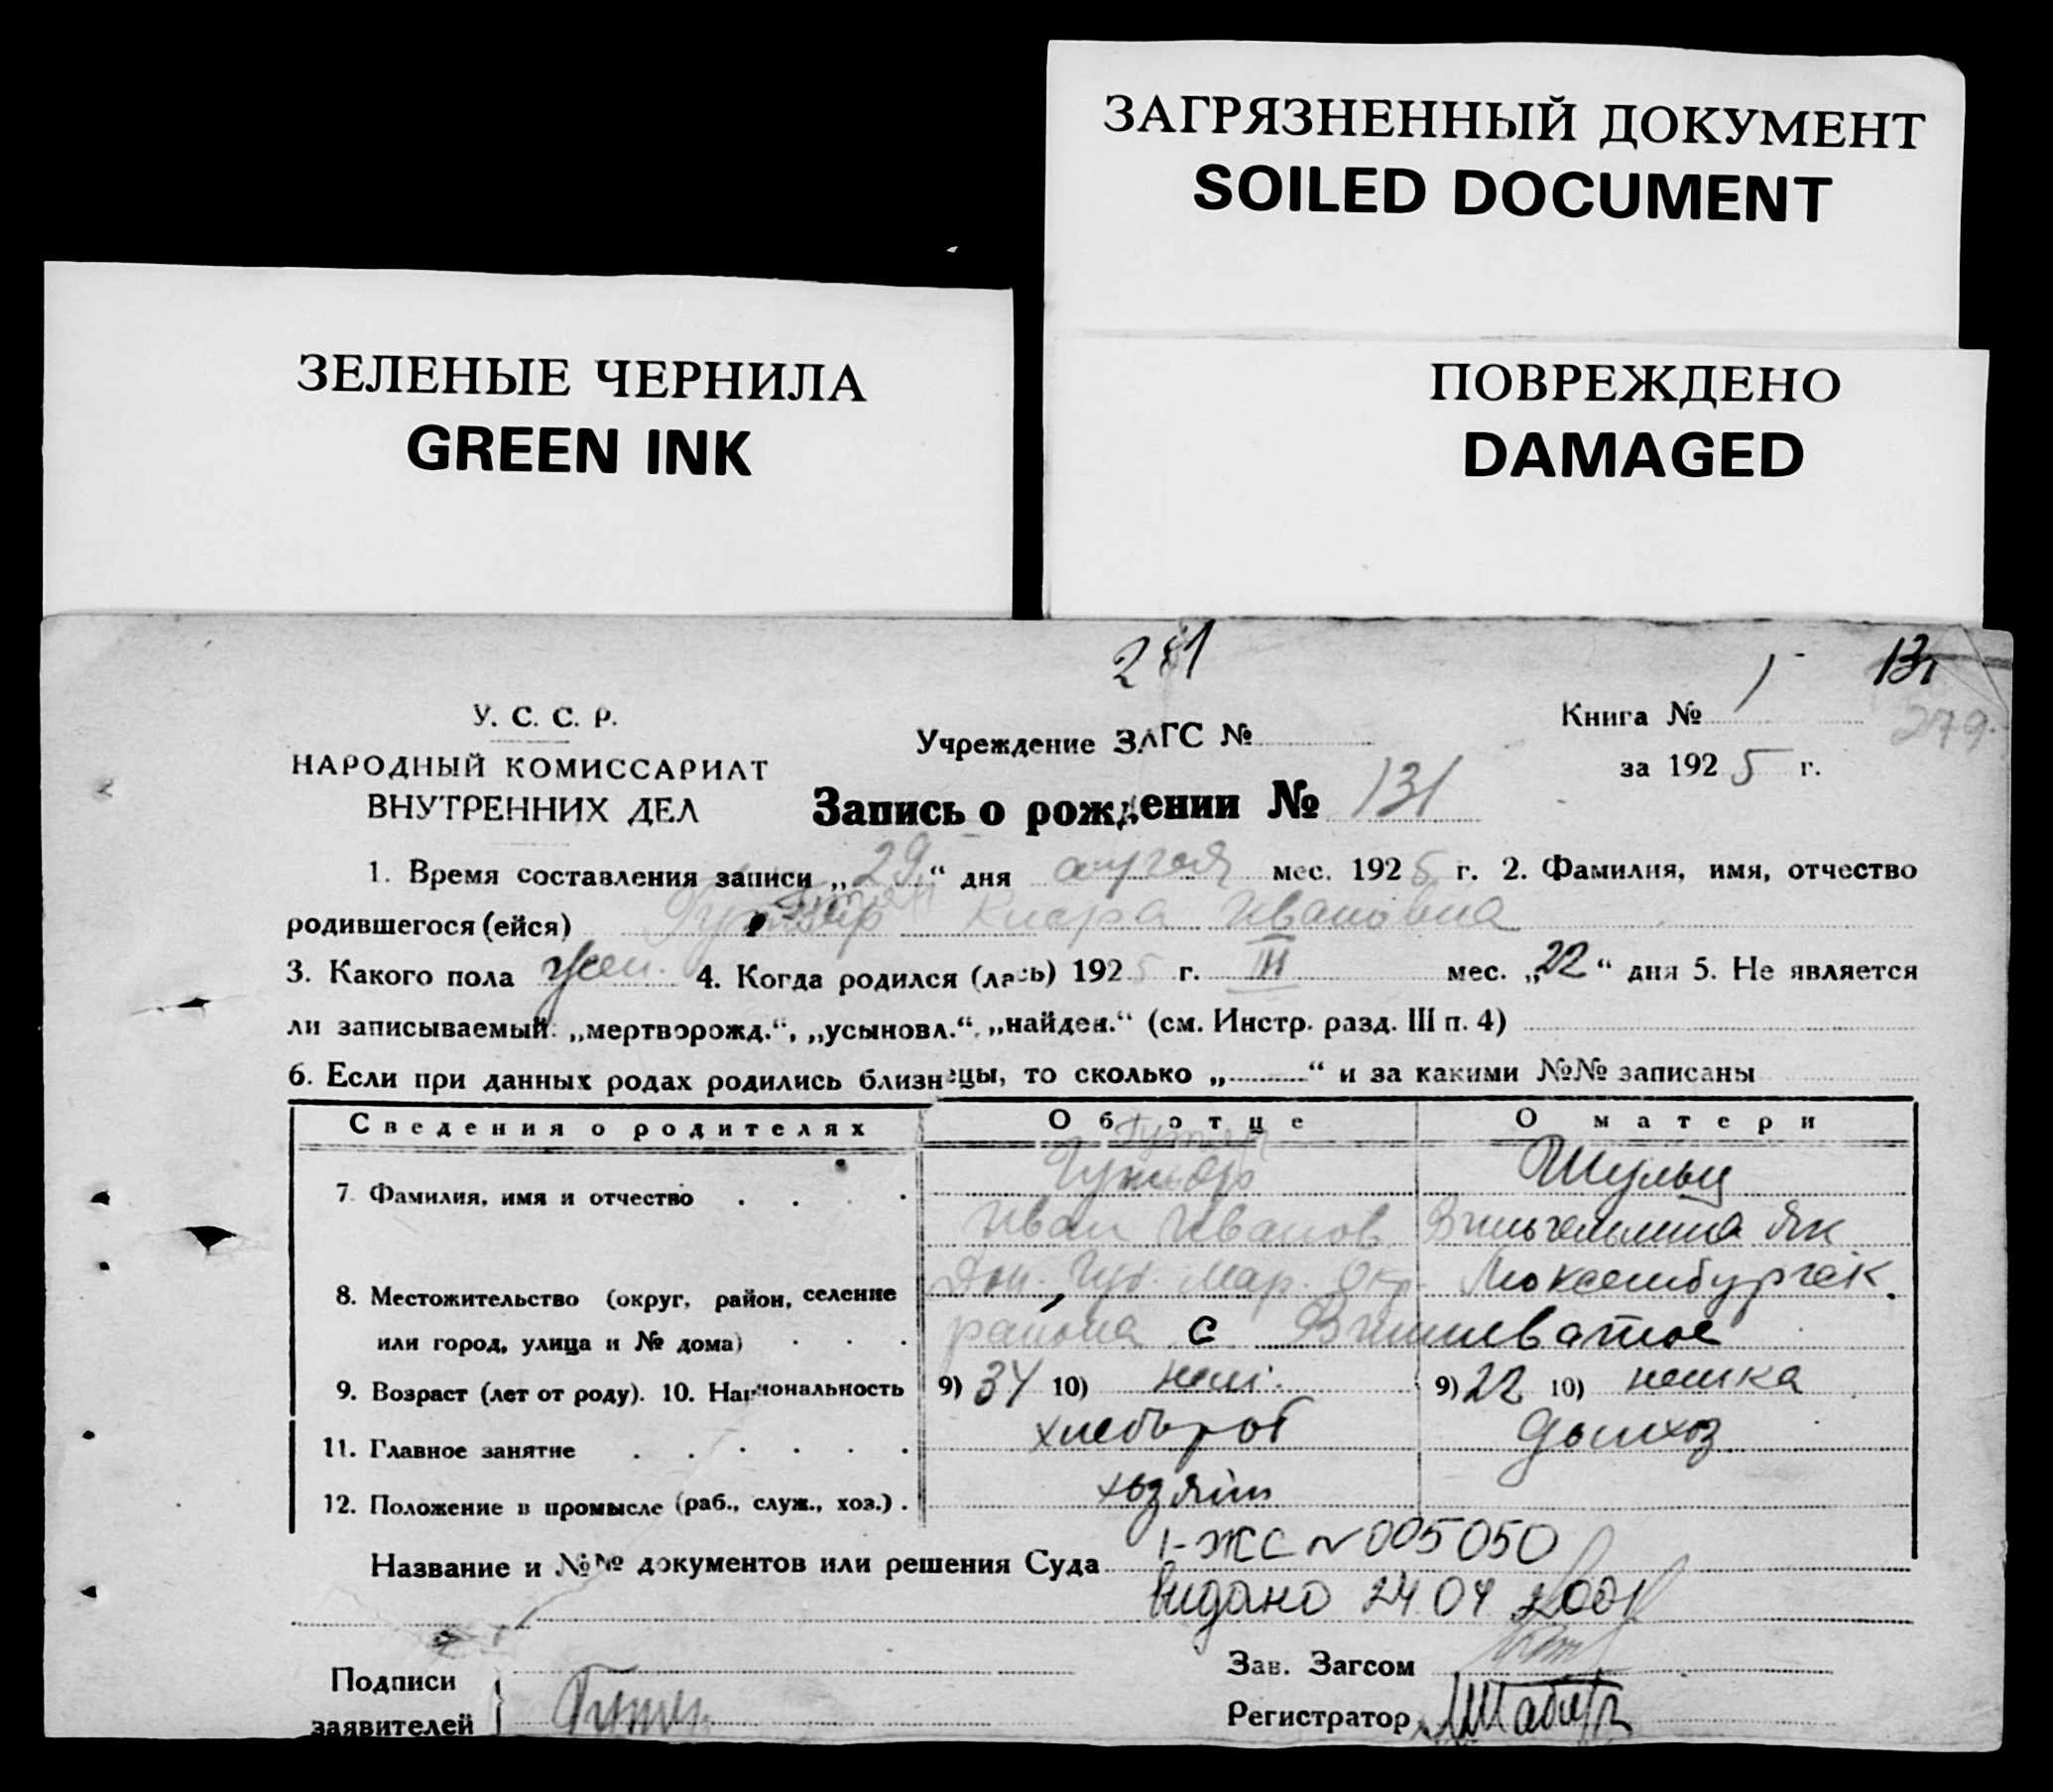 ЗАГРЯЗНЕННЫЙ ДОКУМЕНТ
SOILED DOCUMENT
ЗЕЛЕНЫЕ ЧЕРНИЛА
GREEN INK
ПОВРЕЖДЕНО
DAMAGED
281
131
279
У. С. С. Р.
НАРОДНЫЙ КОМИССАРИАТ
ВНУТРЕННИХ ДЕЛ
Учреждение ЗАГС №
Книга № 1
за 1925 г.
Запись о рождении № 131
1. Время составления записи „29“ дня апреля мес. 1925 г. 2. Фамилия, имя, отчество
родившегося (ейся) Клара Ивановна
3. Какого пола жен. 4. Когда родился (лась) 1925 г. III мес. „22“ дня 5. Не является
ли записываемый: „мертворожд.“, „усыновл.“, „найден.“ (см. Инстр. разд. III п. 4)
6. Если при данных родах родились близнецы, то сколько „“ и за какими №№ записаны
Сведения о родителях Об отце О матери
7. Фамилия, имя и отчество Шульц
Иван Иванов. Вильгельмина Як.
8. Местожительство (округ, район, селение Дон. Губ. Мар. Окр. Люксембургск.
или город, улица и № дома) района с Вишневатое
9. Возраст (лет от роду). 10. Национальность 9) 34 10) нем. 9) 22 10) немка
11. Главное занятие хлебороб домхоз
12. Положение в промысле (раб., служ., хоз.) хозяин
Название и №№ документов или решения Суда I-ЖС № 005050
видано 24 04 2001
Подписи
заявителей
Зав. Загсом
Регистратор